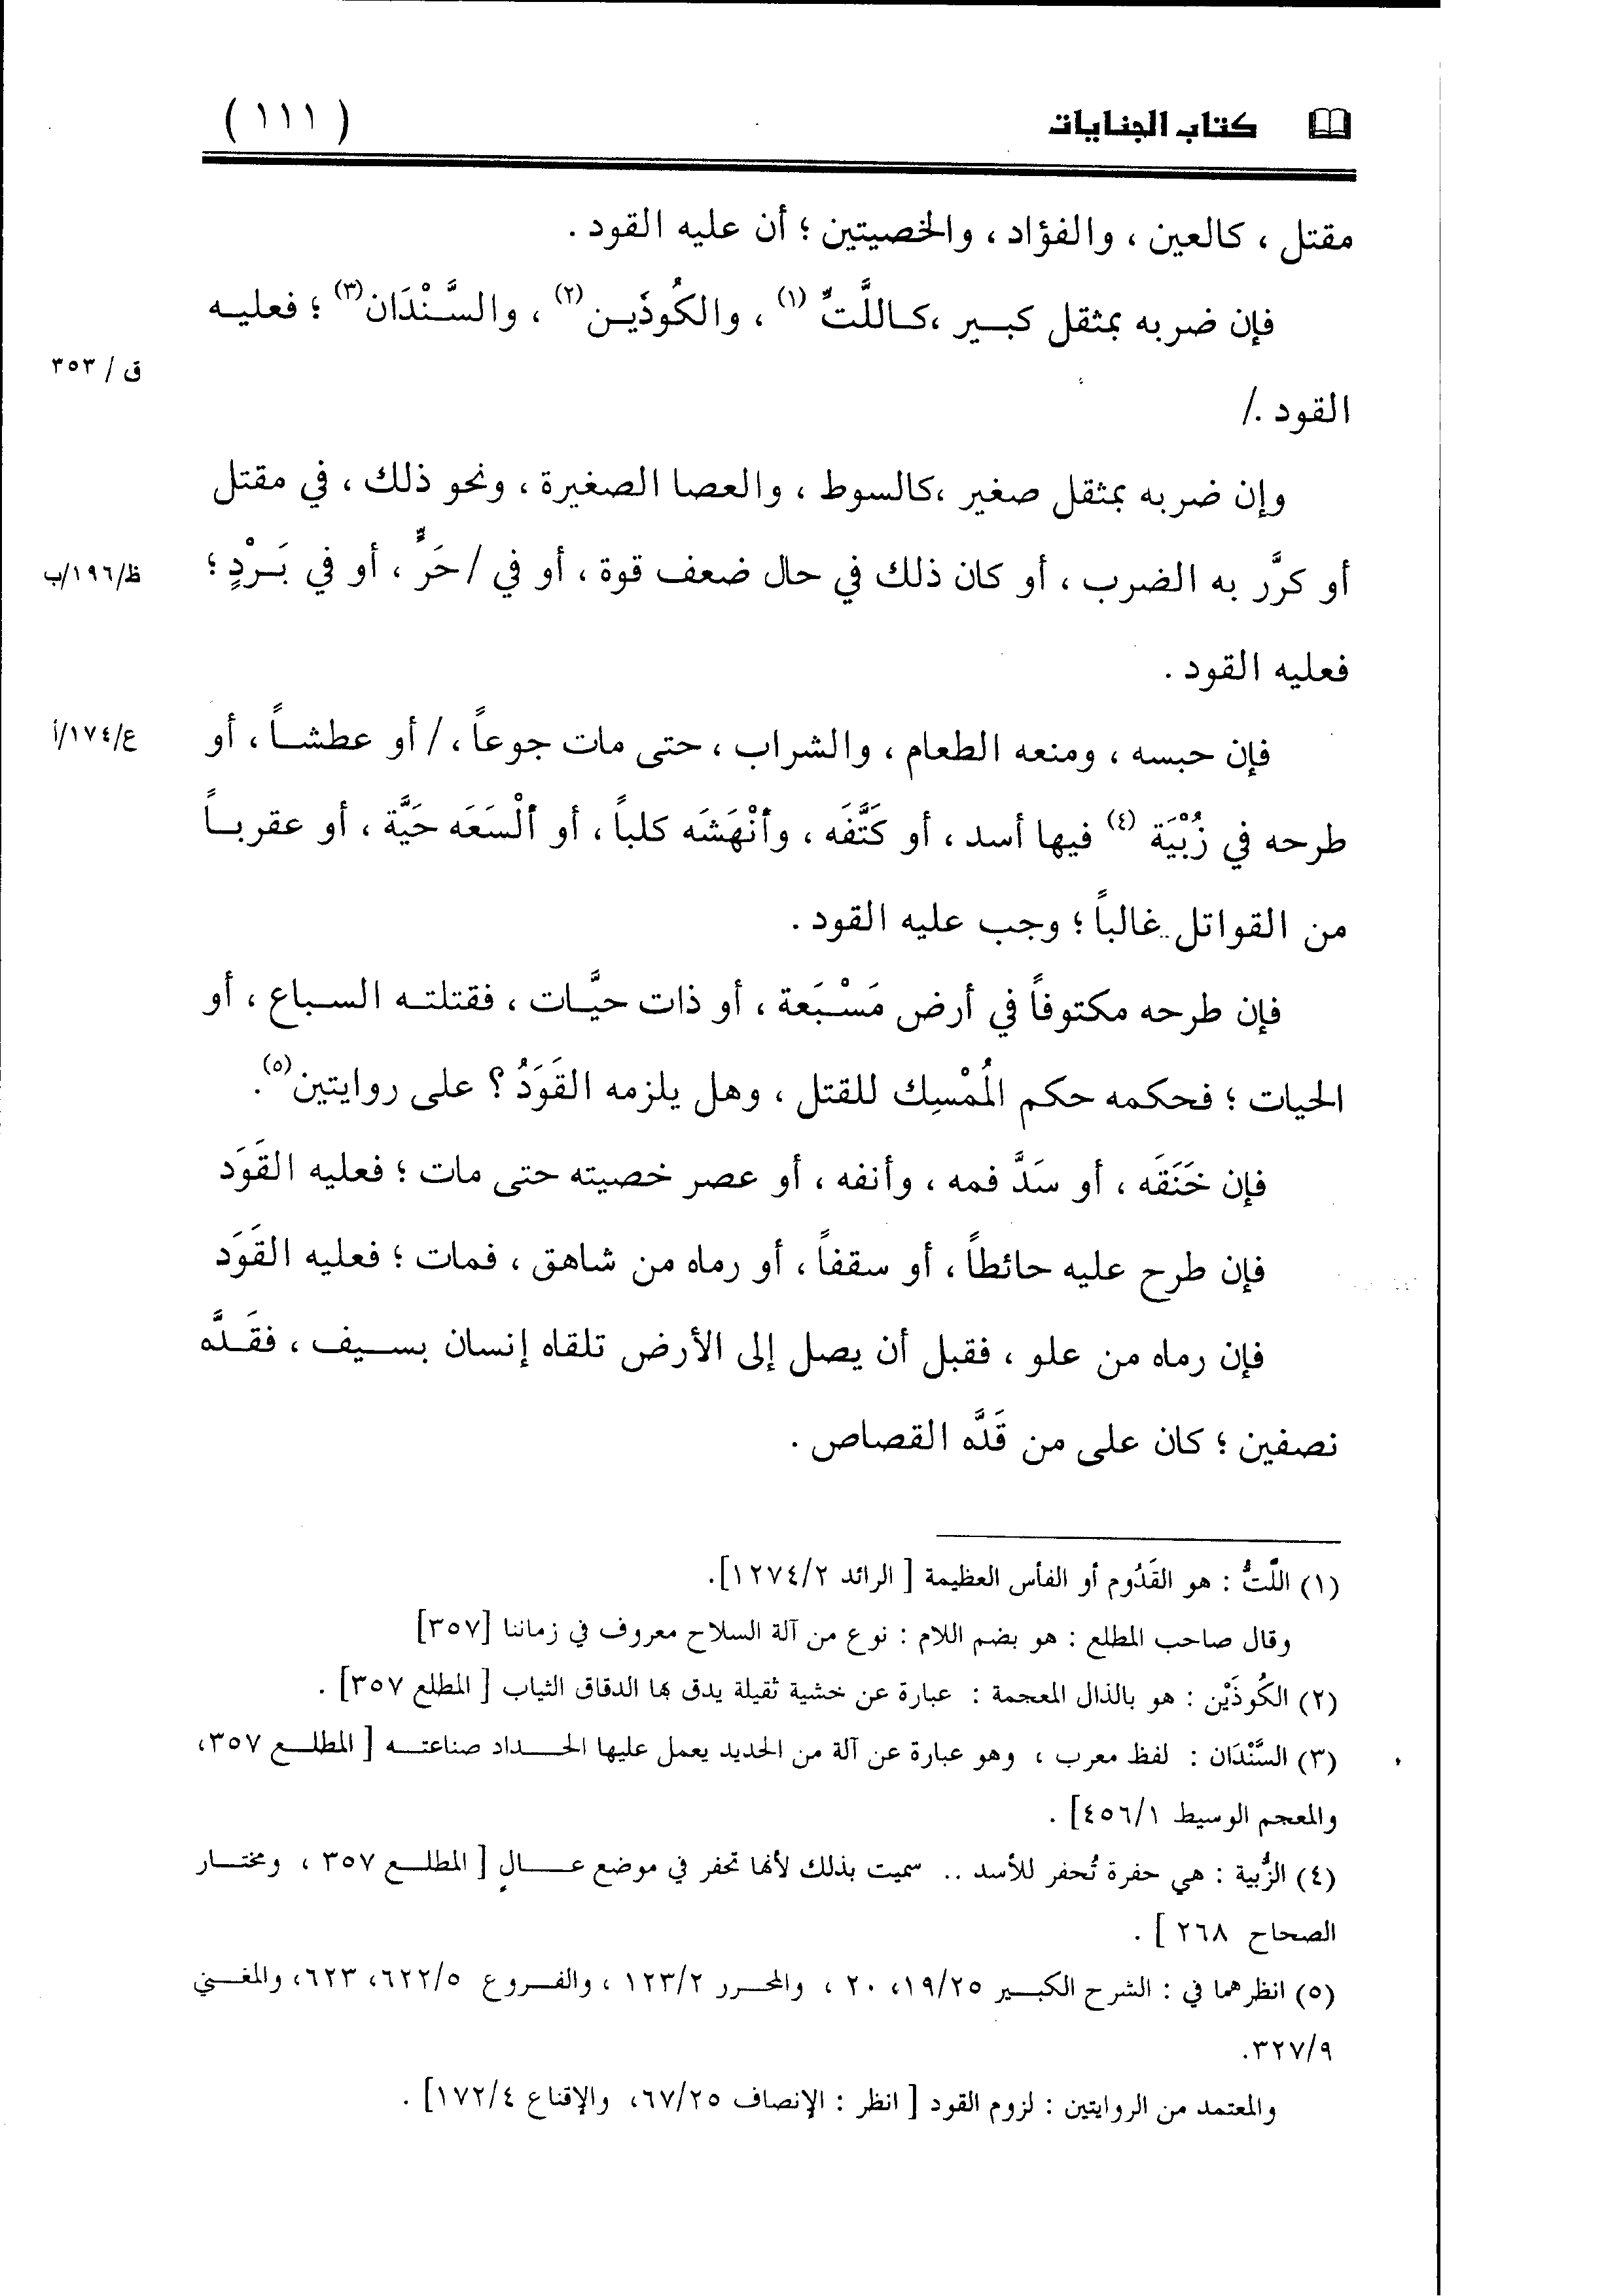 كتاب الجنايات
( ١١١ )
مقتل ، كالعين ، والفؤاد ، والخصيتين ؛ أن عليه القود .
فإن ضربه بمثقل كبير ،كاللَّتِّ (١) ، والكُوذَين(٢) ، والسَّنْدَان(٣) ؛ فعليه
ق / ٣٥٣
القود ./
وإن ضربه بمثقل صغير ،كالسوط ، والعصا الصغيرة ، ونحو ذلك ، في مقتل
أو كرَّر به الضرب ، أو كان ذلك في حال ضعف قوة ، أو في / حَرٍّ ، أو في بَرْدٍ ؛
ظ/١٩٦/ب
فعليه القود .
فإن حبسه ، ومنعه الطعام ، والشراب ، حتى مات جوعاً ، / أو عطشاً ، أو
ع/١٧٤/أ
طرحه في زُبْيَة (٤) فيها أسد ، أو كَتَّفَه ، وأنْهَشَه كلباً ، أو ألْسَعَه حَيَّة ، أو عقرباً
من القواتل غالباً ؛ وجب عليه القود .
فإن طرحه مكتوفاً في أرض مَسْبَعة ، أو ذات حيَّات ، فقتلته السباع ، أو
الحيات ؛ فحكمه حكم المُمْسِك للقتل ، وهل يلزمه القَوَدُ ؟ على روايتين(٥).
فإن خَنَقَه ، أو سَدَّ فمه ، وأنفه ، أو عصر خصيته حتى مات ؛ فعليه القَوَد
فإن طرح عليه حائطاً ، أو سقفاً ، أو رماه من شاهق ، فمات ؛ فعليه القَوَد
فإن رماه من علو ، فقبل أن يصل إلى الأرض تلقاه إنسان بسيف ، فقَدَّه
نصفين ؛ كان على من قَدَّه القصاص .
(١) اللَّتُّ : هو القَدُوم أو الفأس العظيمة [ الرائد ١٢٧٤/٢].
وقال صاحب المطلع : هو بضم اللام : نوع من آلة السلاح معروف في زماننا [٣٥٧]
(٢) الكُوذَيْن : هو بالذال المعجمة : عبارة عن خشبة ثقيلة يدق بها الدقاق الثياب [ المطلع ٣٥٧] .
(٣) السَّنْدَان : لفظ معرب ، وهو عبارة عن آلة من الحديد يعمل عليها الحداد صناعته [ المطلع ٣٥٧،
والمعجم الوسيط ٤٥٦/١] .
(٤) الزُّبية : هي حفرة تُحفر للأسد .. سميت بذلك لأنها تحفر في موضع عالٍ [ المطلع ٣٥٧ ، ومختار
الصحاح ٢٦٨ ] .
(٥) انظرهما في : الشرح الكبير ١٩/٢٥، ٢٠ ، والمحرر ١٢٣/٢ ، والفروع ٦٢٢/٥، ٦٢٣، والمغني
٣٢٧/٩.
والمعتمد من الروايتين : لزوم القود [ انظر : الإنصاف ٦٧/٢٥، والإقناع ١٧٢/٤] .